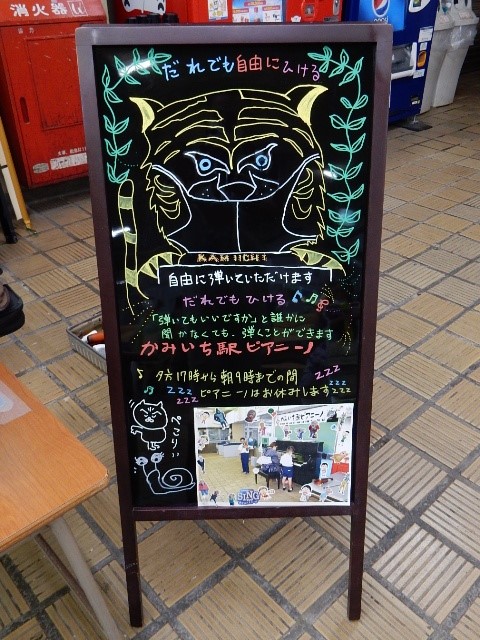 消火器
pepsi
だれでも自由にひける
KAMIICHI
自由に弾いていただけます
だれでもひける
「弾いてもいいですか」と誰かに
聞かなくても、弾くことができます
かみいち駅ピアニーノ
夕方17時から朝9時までの間 ZZZ
ZZZ ZZZ ピアニーノはお休みします ZZZ ZZZ
ぺこり
SING